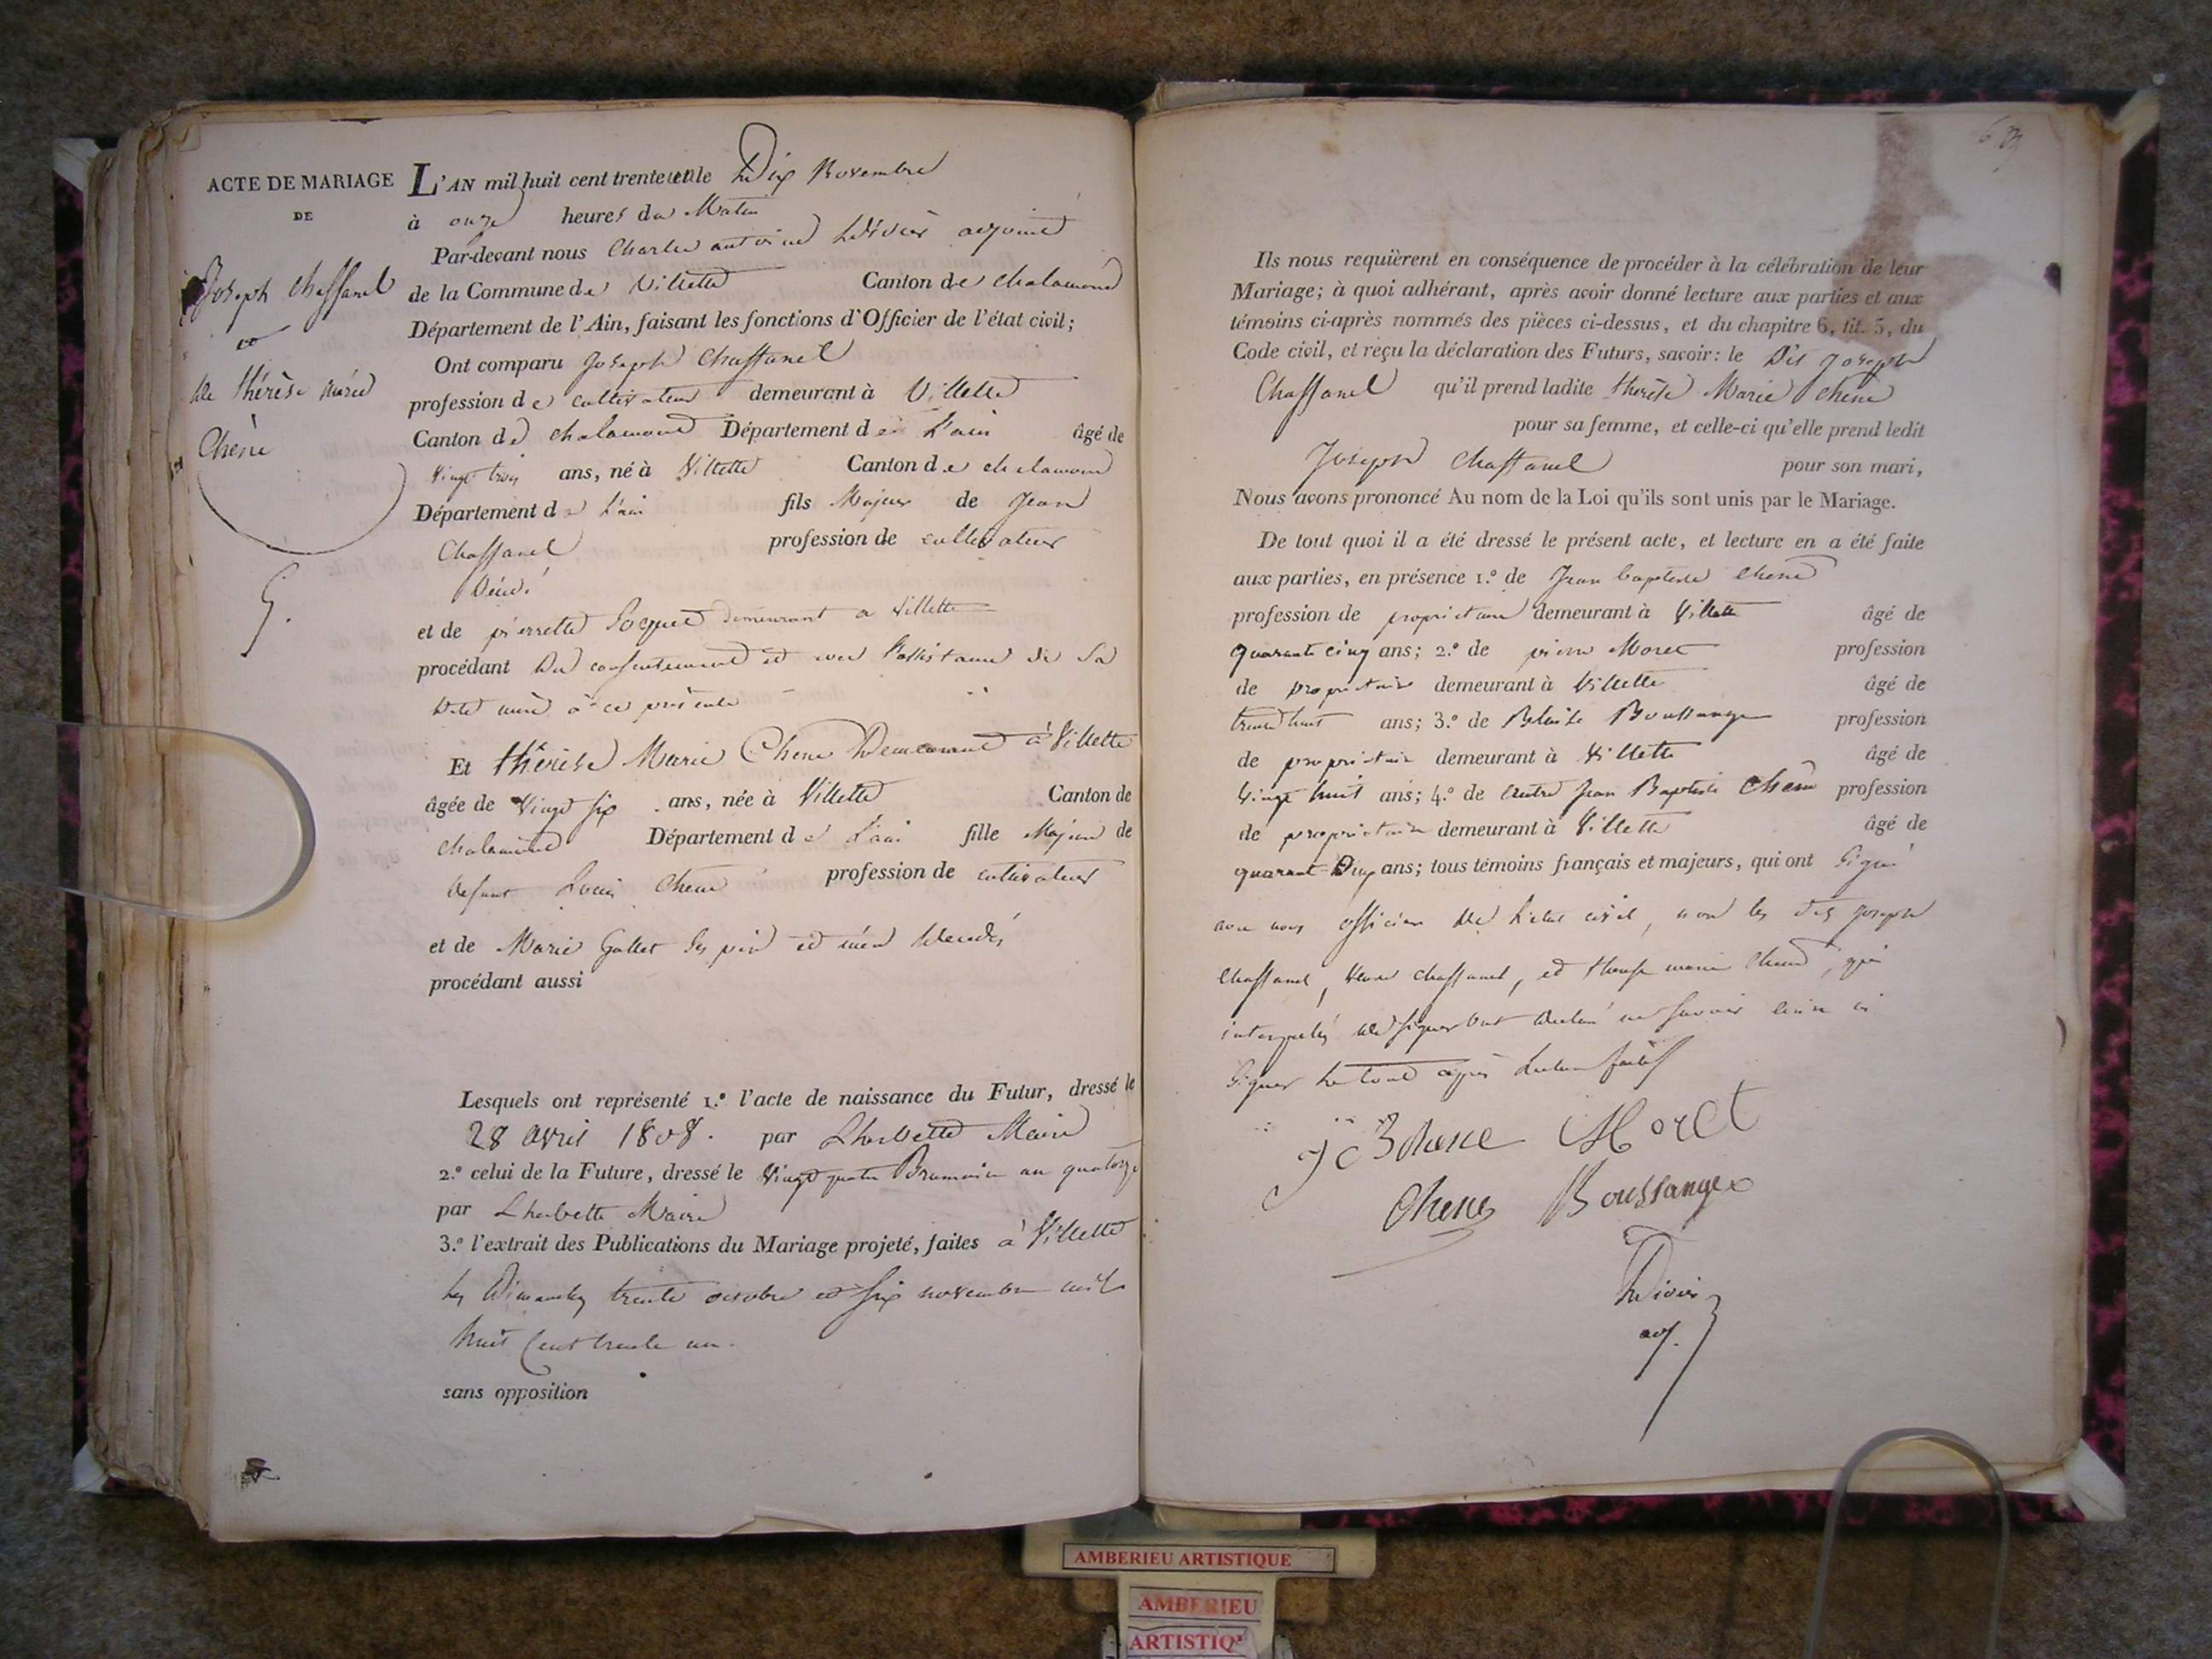 ACTE DE MARIAGE
DE
Joseph Chaffanel
et
de thérèse marie
Chêne
L'AN mil huit cent trente un le Dix Novembre
à onze heures du Matin
Par-devant nous Charles antoine Didier adjoint
de la Commune de Villette Canton de chalamond
Département de l'Ain, faisant les fonctions d'Officier de l'état civil;
Ont comparu Joseph Chaffanel
profession de cultivateur demeurant à Villette
Canton de chalamond Département de L'ain âgé de
Vingt trois ans, né à Villette Canton de chalamond
Département de L'ain fils Majeur de Jean
Chaffanel profession de cultivateur
Décédé
et de pierrette Socquet demeurant a Villette
procédant Du consentement et avec l'assistance de Sa
Dite mère à ce présente
Et thérèse Marie Chene Demeurant à Villette
âgée de Vingt six ans, née à Villette Canton de
chalamond Département de L'ain fille Majeure de
defunt Louis Chene profession de cultivateur
et de Marie Gallet Ses père et mère décédés
procédant aussi
Lesquels ont représenté 1.º l'acte de naissance du Futur, dressé le
28 avril 1808. par Lherbette Maire
2.º celui de la Future, dressé le Vingt quatre Brumaire an quatorze
par Lherbette Maire
3.º l'extrait des Publications du Mariage projeté, faites à Villette
les Dimanches trente octobre et six novembre mil
huit Cent trente un.
sans opposition
Ils nous requièrent en conséquence de procéder à la célébration de leur
Mariage; à quoi adhérant, après avoir donné lecture aux parties et aux
témoins ci-après nommés des pièces ci-dessus, et du chapitre 6, tit. 5, du
Code civil, et reçu la déclaration des Futurs, savoir: le Dit Joseph
Chaffanel qu'il prend ladite thérèse Marie Chene
pour sa femme, et celle-ci qu'elle prend ledit
Joseph Chaffanel pour son mari,
Nous avons prononcé Au nom de la Loi qu'ils sont unis par le Mariage.
De tout quoi il a été dressé le présent acte, et lecture en a été faite
aux parties, en présence 1.º de Jean baptiste Chene
profession de propriétaire demeurant à Villette âgé de
quarante cinq ans; 2.º de pierre Moret profession
de propriétaire demeurant à Villette âgé de
trente huit ans; 3.º de Blaise Boussange profession
de propriétaire demeurant à Villette âgé de
Vingt huit ans; 4.º de autre Jean Baptiste Chêne profession
de propriétaire demeurant à Villette âgé de
quarant Deux ans; tous témoins français et majeurs, qui ont Signé
avec nous officier de l'état civil, non les dits joseph
Chaffanel, Veuve chaffanel, et therese marie Chene, qui
interpellés de signer ont déclaré ne savoir écrire ni
Signer le tout après lecture faite
J B Chene Moret
Chene Boussange
Didier
adj.
AMBERIEU ARTISTIQUE
AMBERIEU
ARTISTIQ